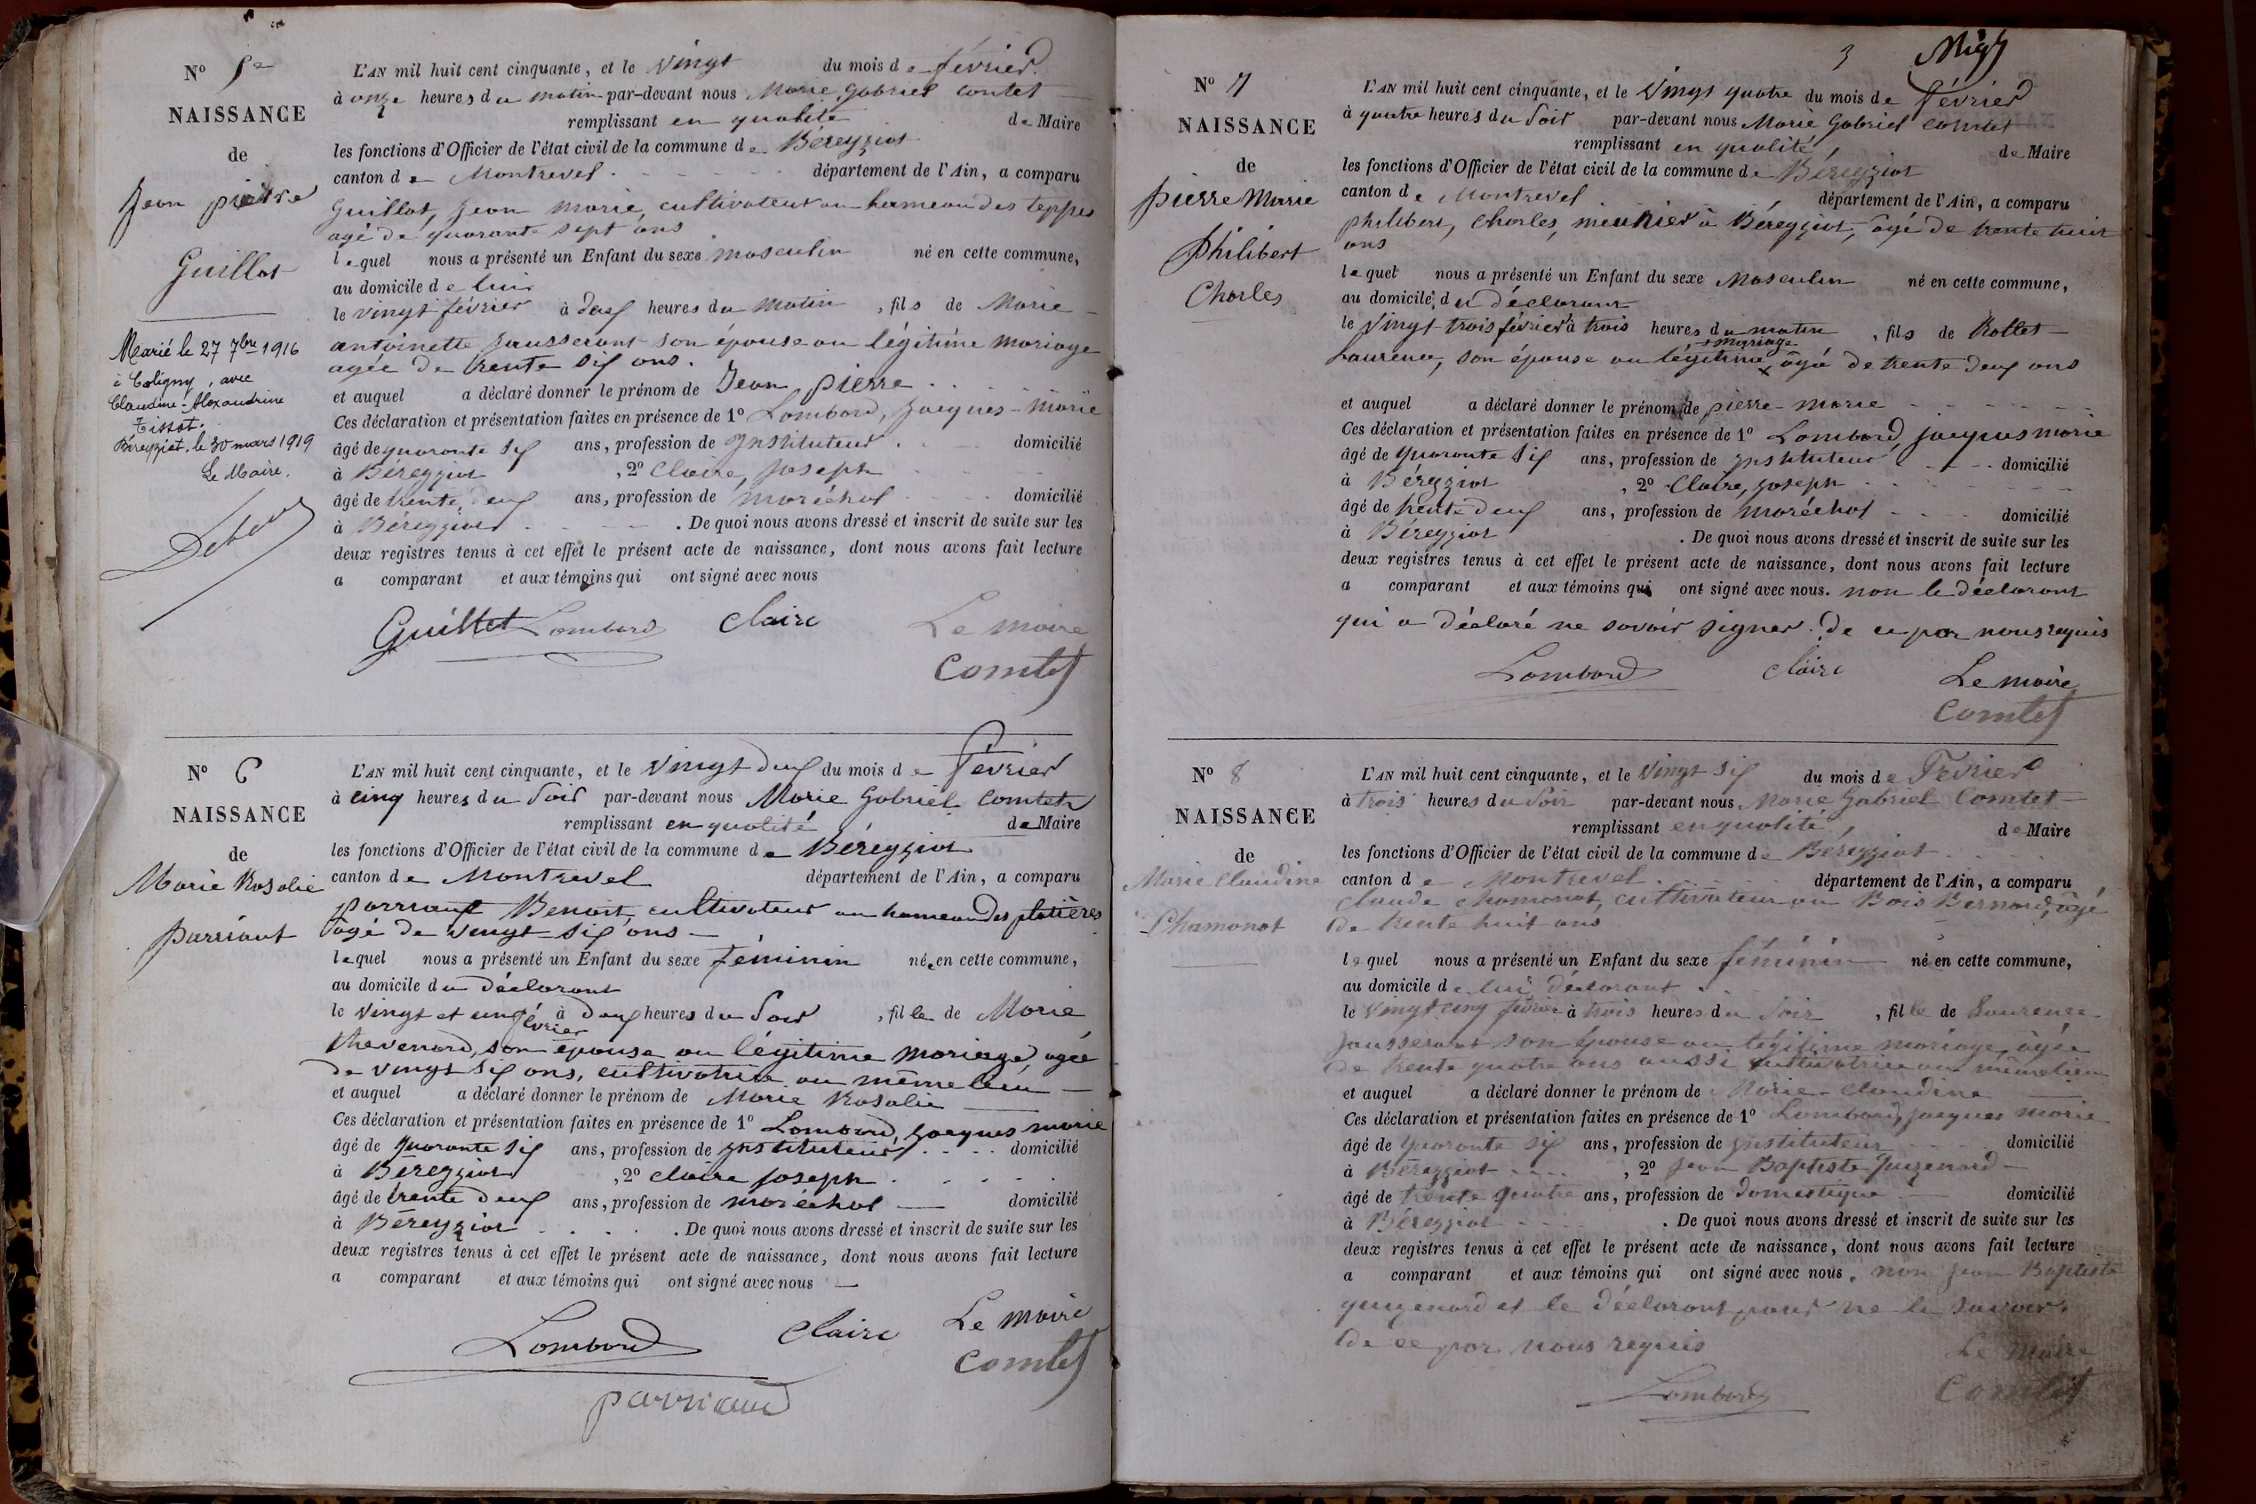 N° 5
NAISSANCE
de
Jean pierre
Guillot
Marié le 27 7bre 1916
à Coligny, avec
Claudine-Alexandrine
Tissot.
Béreyziat, le 30 mars 1919
Le Maire.
L'AN mil huit cent cinquante, et le vingt du mois de février
à onze heures du matin par-devant nous Marie Gabriel Comtet
remplissant en qualité de Maire
les fonctions d'Officier de l'état civil de la commune de Béreyziat
canton de Montrevel département de l'Ain, a comparu
Guillot, Jean Marie, cultivateur au hameau des teppes
agé de quarante sept ans
lequel nous a présenté un Enfant du sexe masculin né en cette commune,
au domicile de lui
le vingt février à deux heures du matin, fils de Marie
antoinette Jausserant son épouse en légitime mariage
agée de trente six ans.
et auquel a déclaré donner le prénom de Jean pierre
Ces déclaration et présentation faites en présence de 1° Lombard, Jacques-marie
âgé de quarante six ans, profession de Instituteur domicilié
à Béreyziat, 2° Claire, Joseph
âgé de trente deux ans, profession de maréchal domicilié
à Béreyziat. De quoi nous avons dressé et inscrit de suite sur les
deux registres tenus à cet effet le présent acte de naissance, dont nous avons fait lecture
a comparant et aux témoins qui ont signé avec nous
Guillot Lombard Claire Le maire
Comtet
N° 6
NAISSANCE
de
Marie Rosalie
parriaut
L'AN mil huit cent cinquante, et le vingt deux du mois de février
à cinq heures du soir par-devant nous Marie Gabriel Comtet
remplissant en qualité de Maire
les fonctions d'Officier de l'état civil de la commune de Béreyziat
canton de Montrevel département de l'Ain, a comparu
parriaut Benoit, cultivateur au hameau des platières
agé de vingt-six ans
lequel nous a présenté un Enfant du sexe féminin née en cette commune,
au domicile du déclarant
le vingt et un février à deux heures du soir, fille de Marie
thevenard, son épouse en légitime mariage, agée
de vingt six ans, cultivatrice au même lieu
et auquel a déclaré donner le prénom de Marie Rosalie
Ces déclaration et présentation faites en présence de 1° Lombard, Jacques marie
âgé de quarante six ans, profession de Instituteur domicilié
à Béreyziat, 2° claire Joseph
âgé de trente deux ans, profession de maréchal domicilié
à Béreyziat. De quoi nous avons dressé et inscrit de suite sur les
deux registres tenus à cet effet le présent acte de naissance, dont nous avons fait lecture
a comparant et aux témoins qui ont signé avec nous
Lombard Claire Le maire
Comtet
parriaud
3
N° 7
NAISSANCE
de
pierre Marie
Philibert
Charles
L'AN mil huit cent cinquante, et le vingt quatre du mois de février
à quatre heures du soir par-devant nous Marie Gabriel Comtet
remplissant en qualité de Maire
les fonctions d'Officier de l'état civil de la commune de Béreyziat
canton de Montrevel département de l'Ain, a comparu
philibert, Charles, meunier à Béreyziat, âgé de trente huit
ans
lequel nous a présenté un Enfant du sexe Masculin né en cette commune,
au domicile du déclarant
le vingt-trois février à trois heures du matin, fils de Rollet
Laurence, son épouse en légitime + mariage âgé de trente deux ans
et auquel a déclaré donner le prénom de pierre-marie
Ces déclaration et présentation faites en présence de 1° Lombard, Jacques marie
âgé de quarante six ans, profession de Instituteur domicilié
à Béreyziat, 2° Claire, Joseph
âgé de trente deux ans, profession de maréchal domicilié
à Béreyziat. De quoi nous avons dressé et inscrit de suite sur les
deux registres tenus à cet effet le présent acte de naissance, dont nous avons fait lecture
a comparant et aux témoins qui ont signé avec nous. non le déclarant
qui a déclaré ne savoir signer. de ce par nous requis
Lombard Claire Le maire
Comtet
N° 8
NAISSANCE
de
Marie Claudine
Chamonat
L'AN mil huit cent cinquante, et le vingt six du mois de Février
à trois heures du soir par-devant nous Marie Gabriel Comtet
remplissant en qualité, de Maire
les fonctions d'Officier de l'état civil de la commune de Béreyziat
canton de Montrevel département de l'Ain, a comparu
Claude Chamonat, cultivateur au Bois Bernard, âgé
de trente huit ans
lequel nous a présenté un Enfant du sexe féminin né en cette commune,
au domicile de lui déclarant
le vingt cinq février à trois heures du soir, fille de Laurence
Jausserant son épouse en légitime mariage, agée
de trente quatre ans aussi cultivatrice au même lieu
et auquel a déclaré donner le prénom de Marie-Claudine
Ces déclaration et présentation faites en présence de 1° Lombard, Jacques marie
âgé de quarante six ans, profession de Instituteur domicilié
à Béreyziat, 2° Jean Baptiste Guigenard
âgé de trente quatre ans, profession de domestique domicilié
à Béreyziat. De quoi nous avons dressé et inscrit de suite sur les
deux registres tenus à cet effet le présent acte de naissance, dont nous avons fait lecture
a comparant et aux témoins qui ont signé avec nous. non Jean Baptiste
guigenard et le déclarant pour ne le savoir.
de ce par nous requis
Le maire
Lombard Comtet